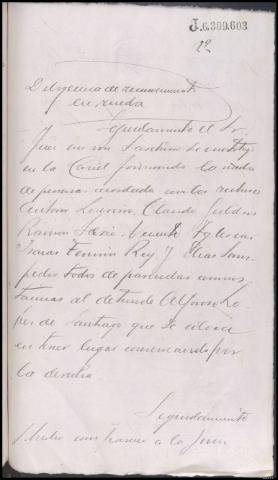 J.6.309.603
12
Diligencia de reconocimiento
en rueda
Seguidamente el Sr.
Juez con su
en la Carcel formando la rueda
de presos acordada con los reclusos
Antonio Claudio
Ramon Vicente Iglesias
Isaias Fermin Rey y Elias Sam-
pedro todos de parecidas circuns
tancias al detenido Alfonso Lo-
pez de Santiago que se coloca
en tercer lugar comenzando por
la derecha.
Seguidamente
a la